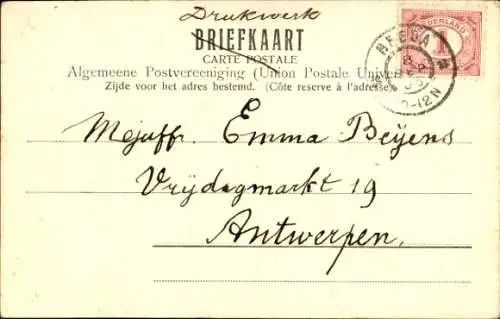 Drukwerk
BRIEFKAART
CARTE POSTALE
Algemeene Postvereeniging (Union Postale Univers
Zijde voor het adres bestemd. (Côte reservé à l'adresse)
NEDERLAND
1
BREDA
10-12N
Mejuffr. Emma Beÿens
Vrijdagmarkt 19
Antwerpen.